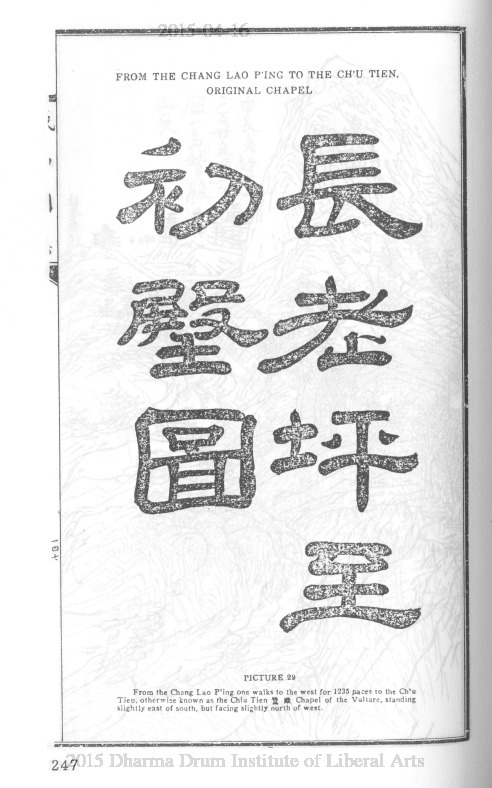 2015-04-16
FROM THE CHANG LAO P'ING TO THE CH'U TIEN,
ORIGINAL CHAPEL
長老坪至
初壂圖
PICTURE 29
From the Chang Lao P'ing one walks to the west for 1235 paces to the Ch'u
Tien, otherwise known as the Chiu Tien Chapel of the Vulture, standing
slightly east of south, but facing slightly north of west.
247
2015 Dharma Drum Institute of Liberal Arts